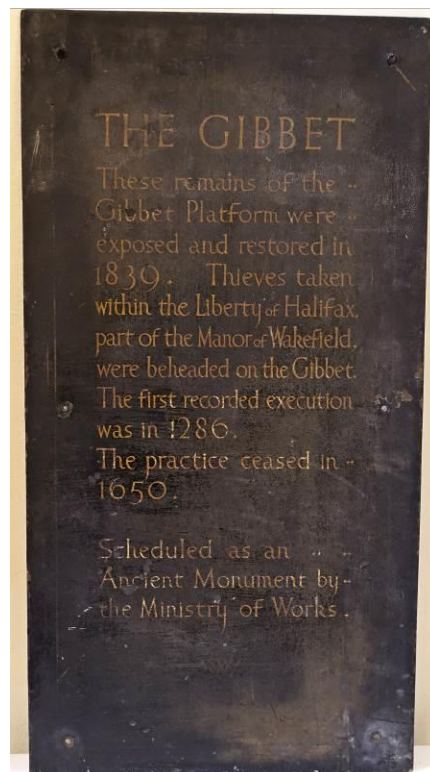 THE GIBBET
These remains of the
Gibbet Platform were
exposed and restored in
1839. Thieves taken
within the Liberty of Halifax,
part of the Manor of Wakefield,
were beheaded on the Gibbet.
The first recorded execution
was in 1286.
The practice ceased in
1650.
Scheduled as an
Ancient Monument by
the Ministry of Works.